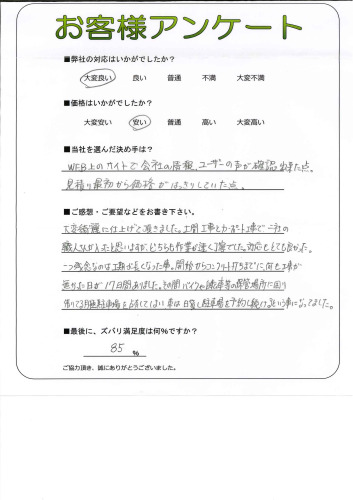 お客様アンケート
■弊社の対応はいかがでしたか？
大変良い 良い 普通 不満 大変不満
■価格はいかがでしたか？
大変安い 安い 普通 高い 大変高い
■当社を選んだ決め手は？
WEB上のサイトで会社の情報、ユーザーの声が確認出来た点。
見積り最初から価格がはっきりしていた点。
■ご感想・ご要望などをお書き下さい。
大変綺麗に仕上げて頂きました。土間工事とカーポート工事で二社の
職人さんが入ったと思いますが、どちらも作業が速く丁寧でした。対応もとても良かった。
一つ残念なのは工期が長くなった事。開始からコンクリート打ちまでに何も工事が
無かった日が17日間ありました。その間バイクや自転車等の保管場所に困り
借りてる月極駐車場を占有してしまい車は日貸し駐車場を予約し続けるという事になってました。
■最後に、ズバリ満足度は何％ですか？
85 ％
ご協力頂き、誠にありがとうございました。